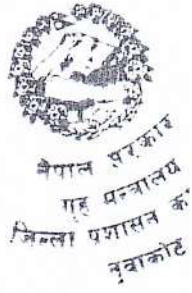 नेपाल सरकार
गृह मन्त्रालय
जिल्ला प्रशासन का
नुवाकोट